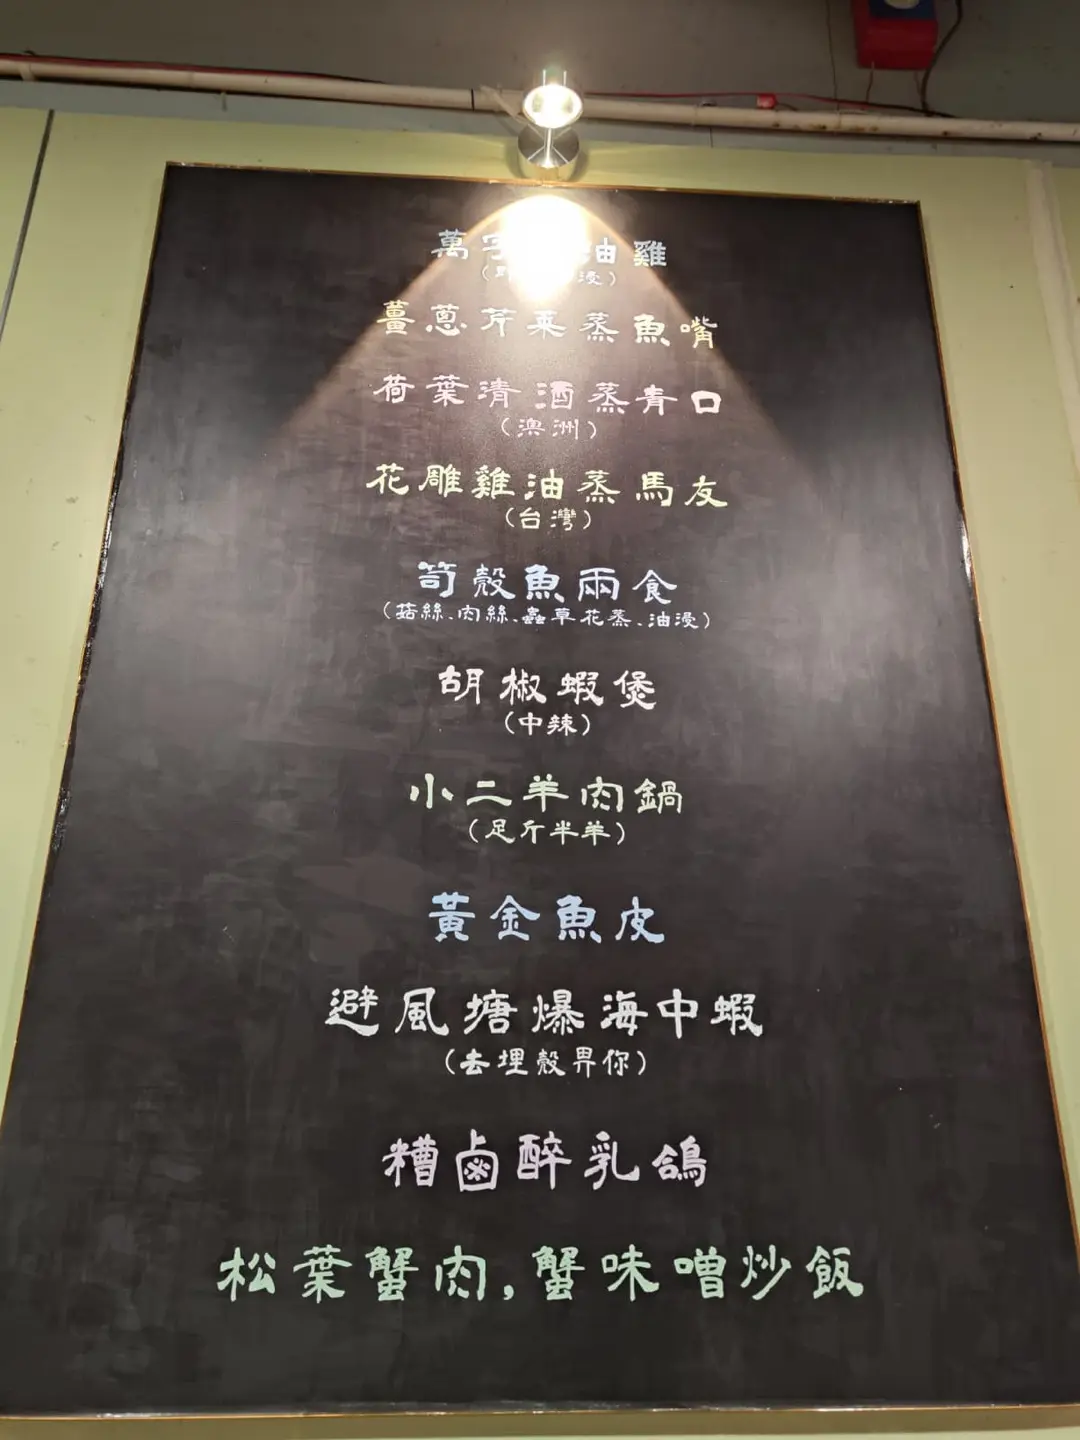 萬字 油雞
薑蔥芹菜蒸魚嘴
荷葉清酒蒸青口
（澳洲）
花雕雞油蒸馬友
（台灣）
筍殼魚兩食
（菇絲、肉絲、蟲草花蒸、油浸）
胡椒蝦煲
（中辣）
小二羊肉鍋
（足斤半羊）
黃金魚皮
避風塘爆海中蝦
（去埋殼畀你）
糟鹵醉乳鴿
松葉蟹肉,蟹味噌炒飯